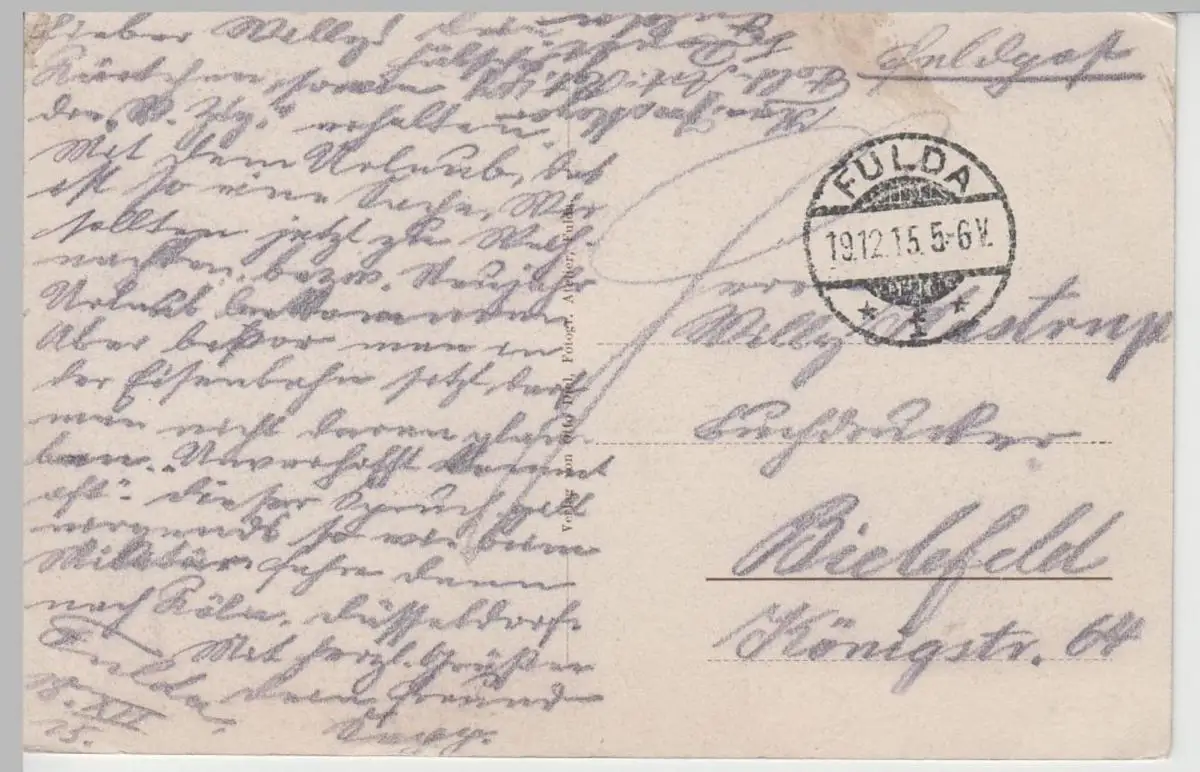 Lieber Willy! Dein
Kärtchen sowie
die „W. Ztg." erhalten.
Mit dem Urlaub, das
ist so eine Sache. Wir
sollten jetzt zu Weih-
nachten, bezw. Neujahr
Urlaub bekommen.
Aber bevor man in
der Eisenbahn sitzt darf
man nicht daran glau-
ben. „Unverhofft kommt
oft". Dieser Spruch gilt
nirgends so wie beim
Militär. Fahre dann
nach Köln, Düsseldorf.
Mit herzl. Grüßen
dein Freund
Sepp.
Fulda,
18. XII
15.
Verlag von Otto Diel, Fotogr. Atelier, Fulda.
Feldpost
FULDA
19.12.15. 5-6 V.
* 1 *
Herrn
Willy
Buchdrucker
Bielefeld
Königstr. 64